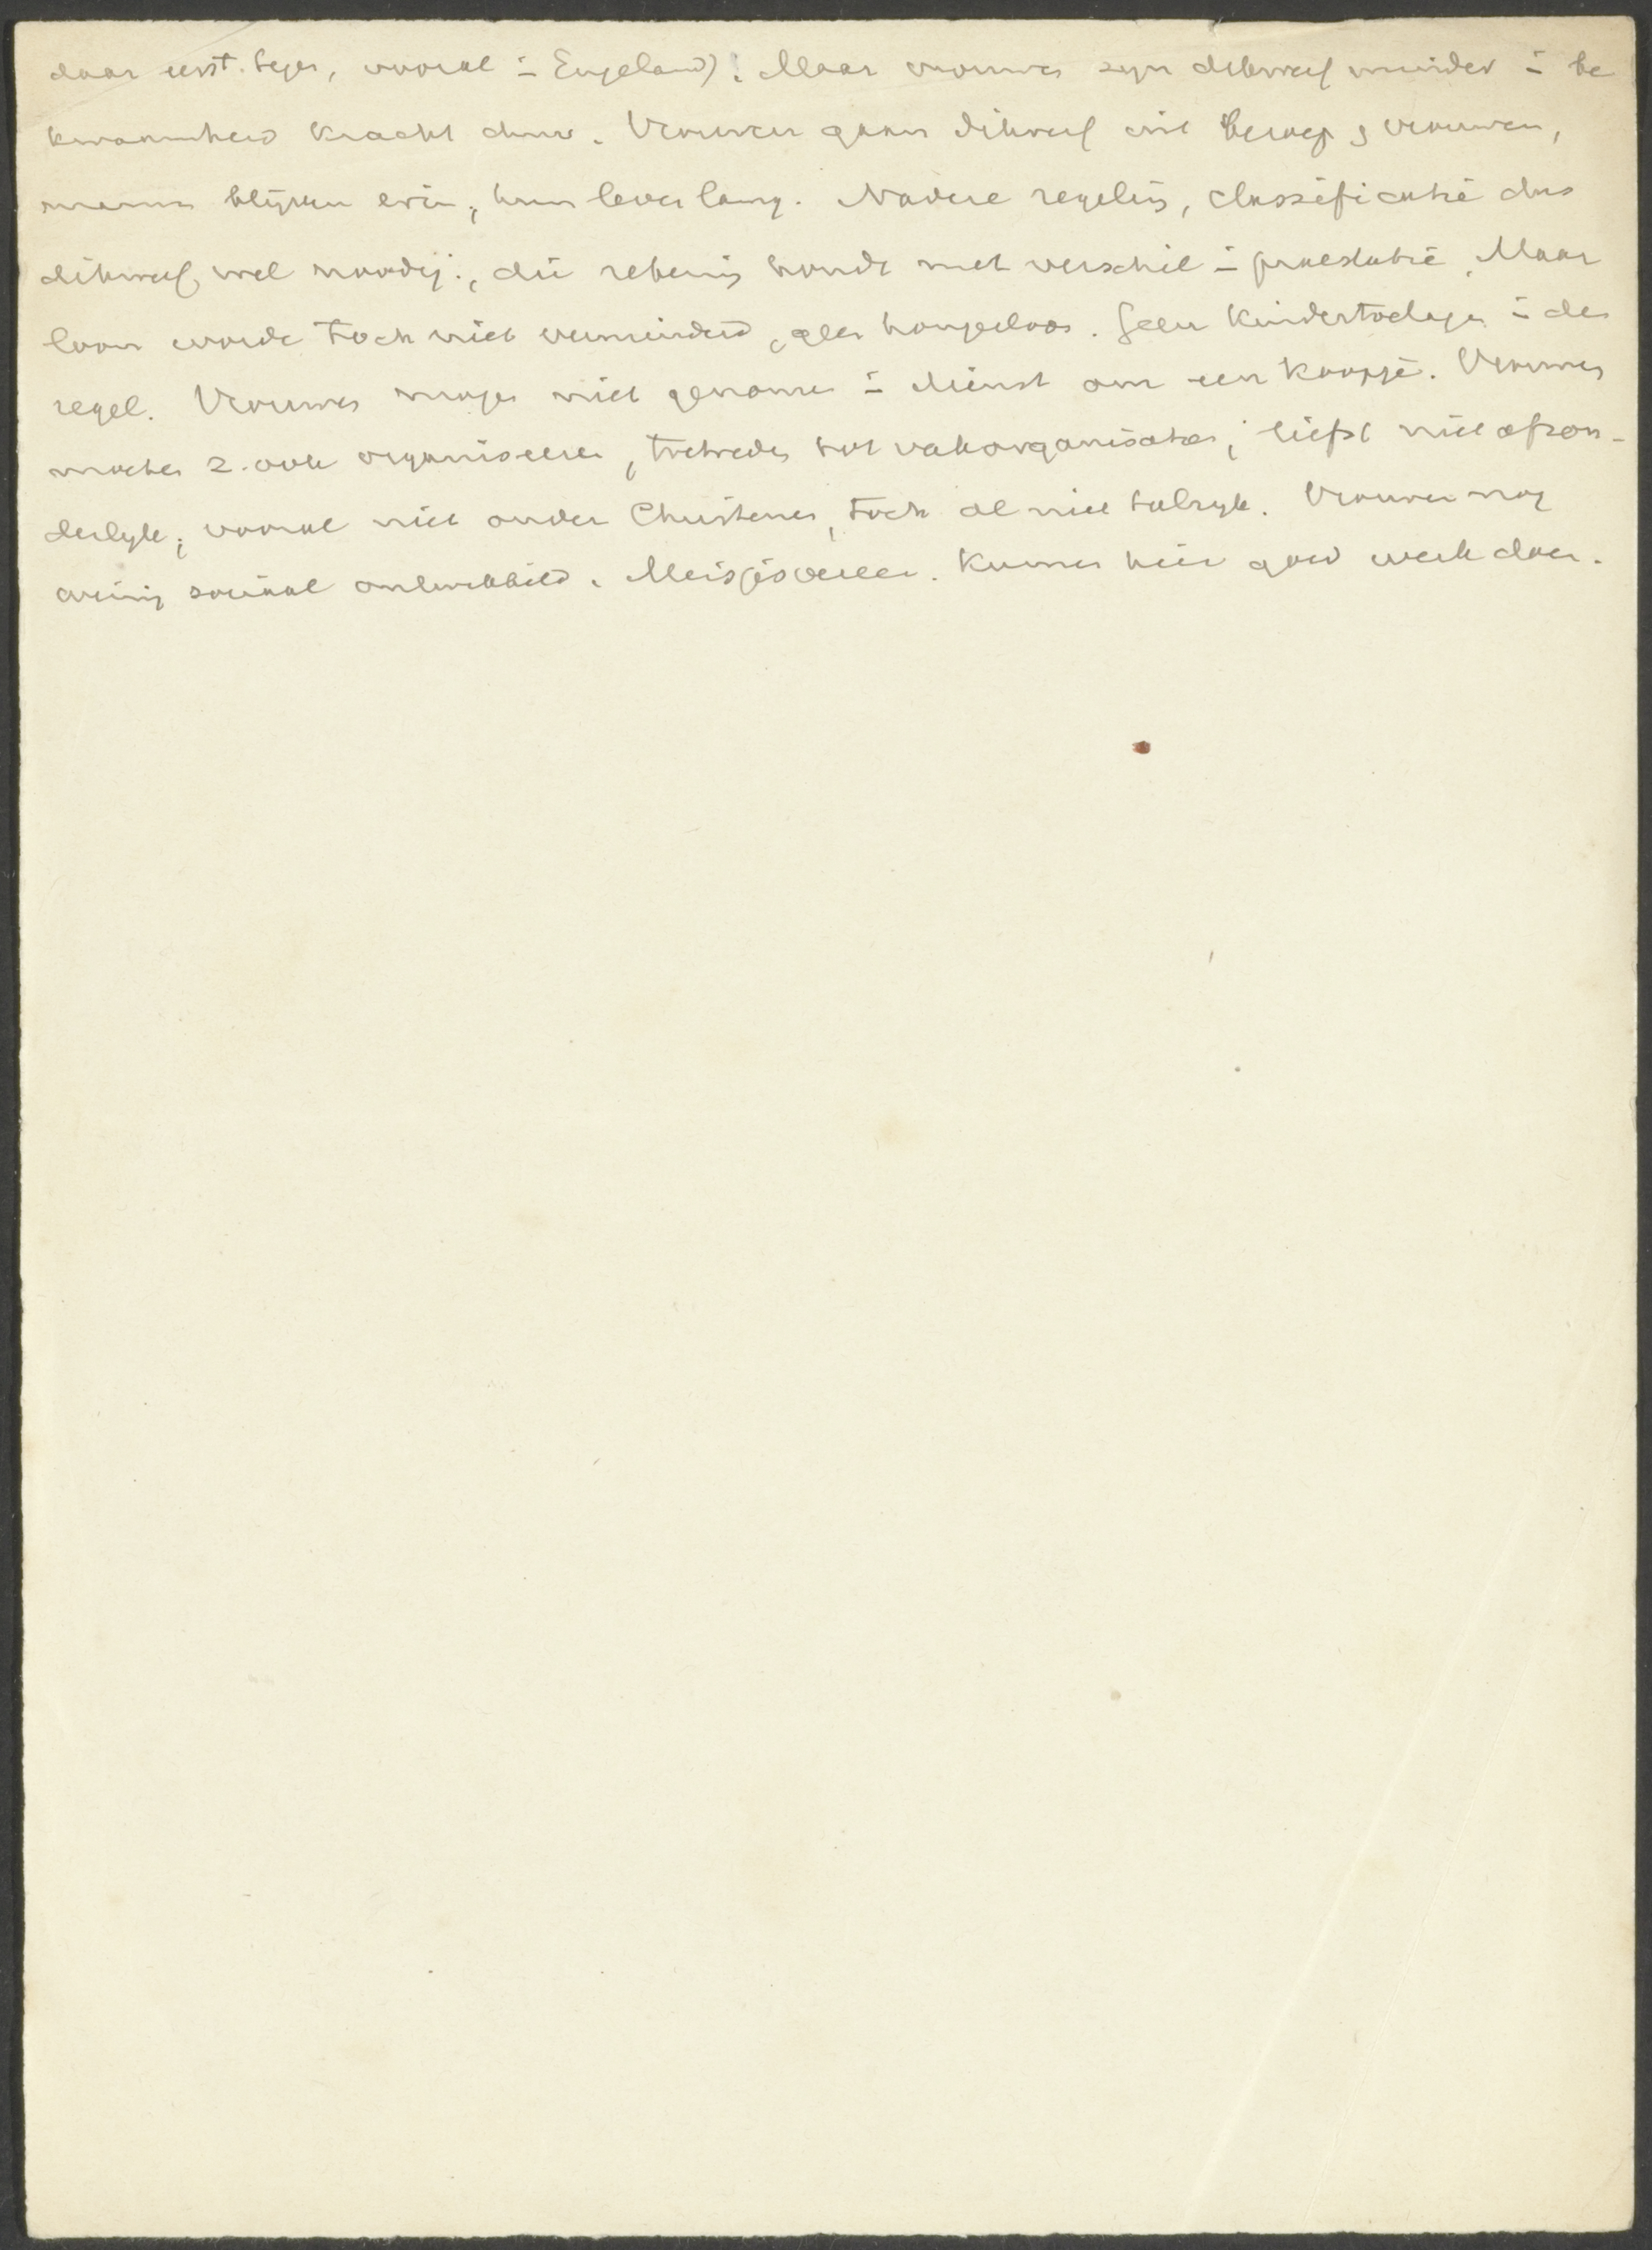 daar eerst tegen, vooral in Engeland). Maar vrouwen zyn dikwerf minder in be
kwaamheid kracht duur. Vrouwen gaan dikwerf uit beroep, trouwen,
mannen blyven erin, hun leven lang. Nadere regeling, classificatie dus
dikwerf wel noodig, die rekening houdt met verschil in praestatie. Maar
loon worde toch niet verminderd, geen hongerloon. Geen kindertoeslagen in den
regel. Vrouwen mogen niet genomen in dienst om een koopje. Vrouwen
moeten z. ook organiseeren, toetreden tot vakorganisaties; liefst niet afzon-
derlyk, vooral niet onder Christenen, toch al niet talryk. Vrouwen nog
weinig sociaal ontwikkeld. Meisjesvereen. kunnen hier goed werk doen.